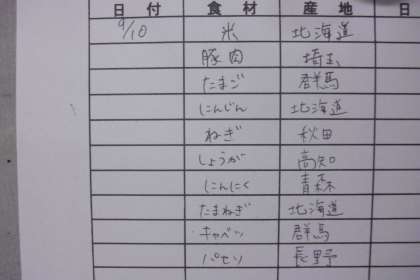 日付 食材 産地 日
9/10 米 北海道
豚肉 埼玉
たまご 群馬
にんじん 北海道
ねぎ 秋田
しょうが 高知
にんにく 青森
たまねぎ 北海道
キャベツ 群馬
パセリ 長野